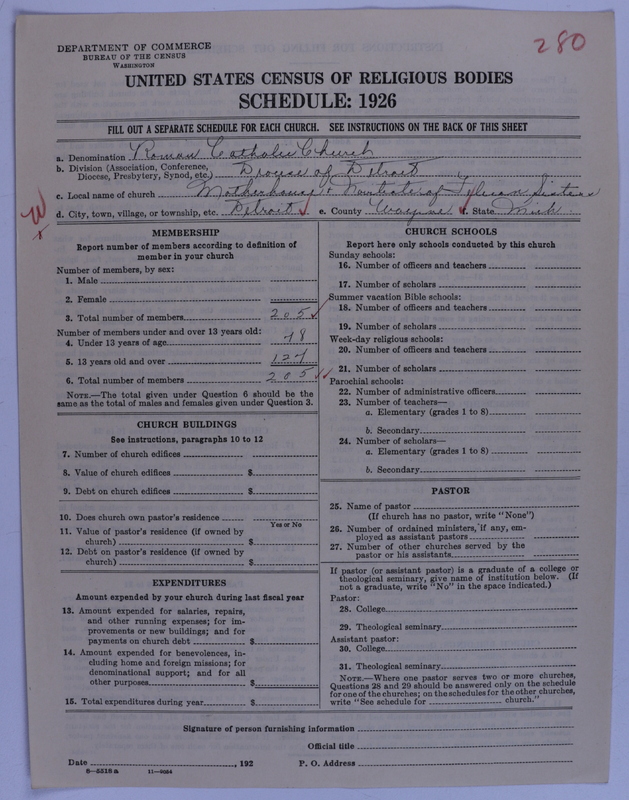 280
DEPARTMENT OF COMMERCE
BUREAU OF THE CENSUS
WASHINGTON
UNITED STATES CENSUS OF RELIGIOUS BODIES
SCHEDULE: 1926
FILL OUT A SEPARATE SCHEDULE FOR EACH CHURCH. SEE INSTRUCTIONS ON THE BACK OF THIS SHEET
a. Denomination Roman Catholic Church
b. Division (Association, Conference,
Diocese, Presbytery, Synod, etc.) Diocese of Detroit
c. Local name of church Motherhouse & Novitiate of Sisters
d. City, town, village, or township, etc. Detroit e. County Wayne f. State Mich
MEMBERSHIP
Report number of members according to definition of
member in your church
Number of members, by sex:
1. Male
2. Female
3. Total number of members 205
Number of members under and over 13 years old:
4. Under 13 years of age 78
5. 13 years old and over 127
6. Total number of members 205
NOTE.—The total given under Question 6 should be the
same as the total of males and females given under Question 3.
CHURCH BUILDINGS
See instructions, paragraphs 10 to 12
7. Number of church edifices
8. Value of church edifices $
9. Debt on church edifices $
10. Does church own pastor's residence
Yes or No
11. Value of pastor's residence (if owned by
church) $
12. Debt on pastor's residence (if owned by
church) $
EXPENDITURES
Amount expended by your church during last fiscal year
13. Amount expended for salaries, repairs,
and other running expenses; for im-
provements or new buildings; and for
payments on church debt $
14. Amount expended for benevolences, in-
cluding home and foreign missions; for
denominational support; and for all
other purposes $
15. Total expenditures during year $
CHURCH SCHOOLS
Report here only schools conducted by this church
Sunday schools:
16. Number of officers and teachers
17. Number of scholars
Summer vacation Bible schools:
18. Number of officers and teachers
19. Number of scholars
Week-day religious schools:
20. Number of officers and teachers
21. Number of scholars
Parochial schools:
22. Number of administrative officers
23. Number of teachers—
a. Elementary (grades 1 to 8)
b. Secondary
24. Number of scholars—
a. Elementary (grades 1 to 8)
b. Secondary
PASTOR
25. Name of pastor
(If church has no pastor, write "None")
26. Number of ordained ministers, if any, em-
ployed as assistant pastors
27. Number of other churches served by the
pastor or his assistants
If pastor (or assistant pastor) is a graduate of a college or
theological seminary, give name of institution below. (If
not a graduate, write "No" in the space indicated.)
Pastor:
28. College
29. Theological seminary
Assistant pastor:
30. College
31. Theological seminary
NOTE.—Where one pastor serves two or more churches,
Questions 28 and 29 should be answered only on the schedule
for one of the churches; on the schedules for the other churches,
write "See schedule for church."
Signature of person furnishing information
Official title
Date , 192 P. O. Address
8—5518 a 11—9054